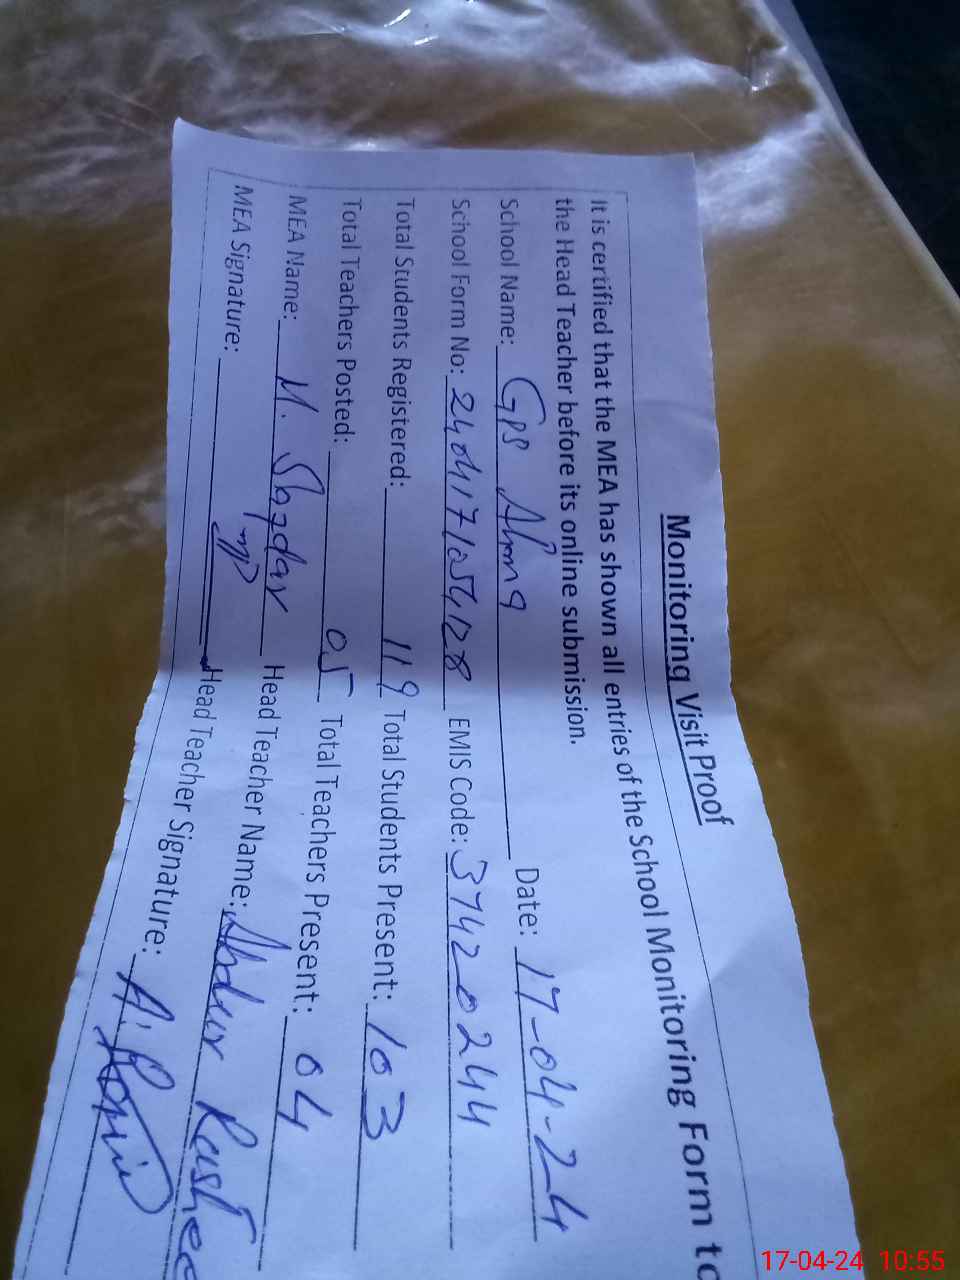 Monitoring Visit Proof
It is certified that the MEA has shown all entries of the School Monitoring Form to
the Head Teacher before its online submission.
School Name: GPS Date: 17-04-24
School Form No: 2404171054128 EMIS Code: 37420244
Total Students Registered: 119 Total Students Present: 103
Total Teachers Posted: 05 Total Teachers Present: 04
MEA Name: M. Head Teacher Name: Abdur Rashee
MEA Signature: Head Teacher Signature:
17-04-24 10:55